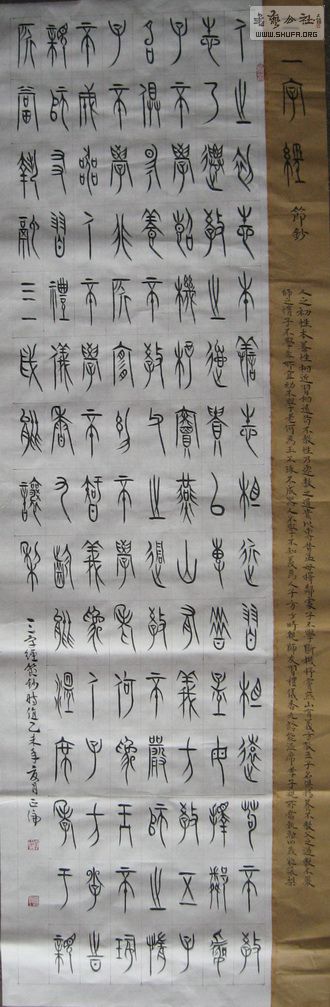 書藝公社
WWW.SHUFA.ORG
三字經 節鈔
人之初性本善性相近習相遠苟不教性乃遷教之道貴以專昔孟母擇鄰處子不學斷機杼竇燕山有義方教五子名俱揚養不教父之過教不嚴
師之惰子不學非所宜幼不學老何為玉不琢不成器人不學不知義為人子方少時親師友習禮儀香九齡能溫席孝于親所當執融四歲能讓梨
人之初性本善性相近習相遠苟不教
性乃遷教之道貴以專昔孟母擇鄰處
子不學斷機杼竇燕山有義方教五子
名俱揚養不教父之過教不嚴師之惰
子不學非所宜幼不學老何為玉不琢
不成器人不學不知義為人子方少時
親師友習禮儀香九齡能溫席孝于親
所當執融四歲能讓梨
三字經節鈔時值乙未年夏月正